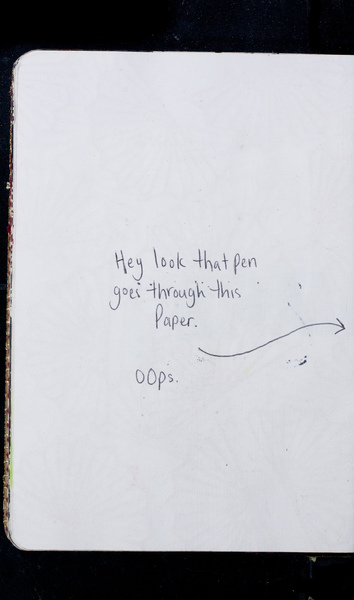 Hey look that pen
goes through this
Paper.
OOps.